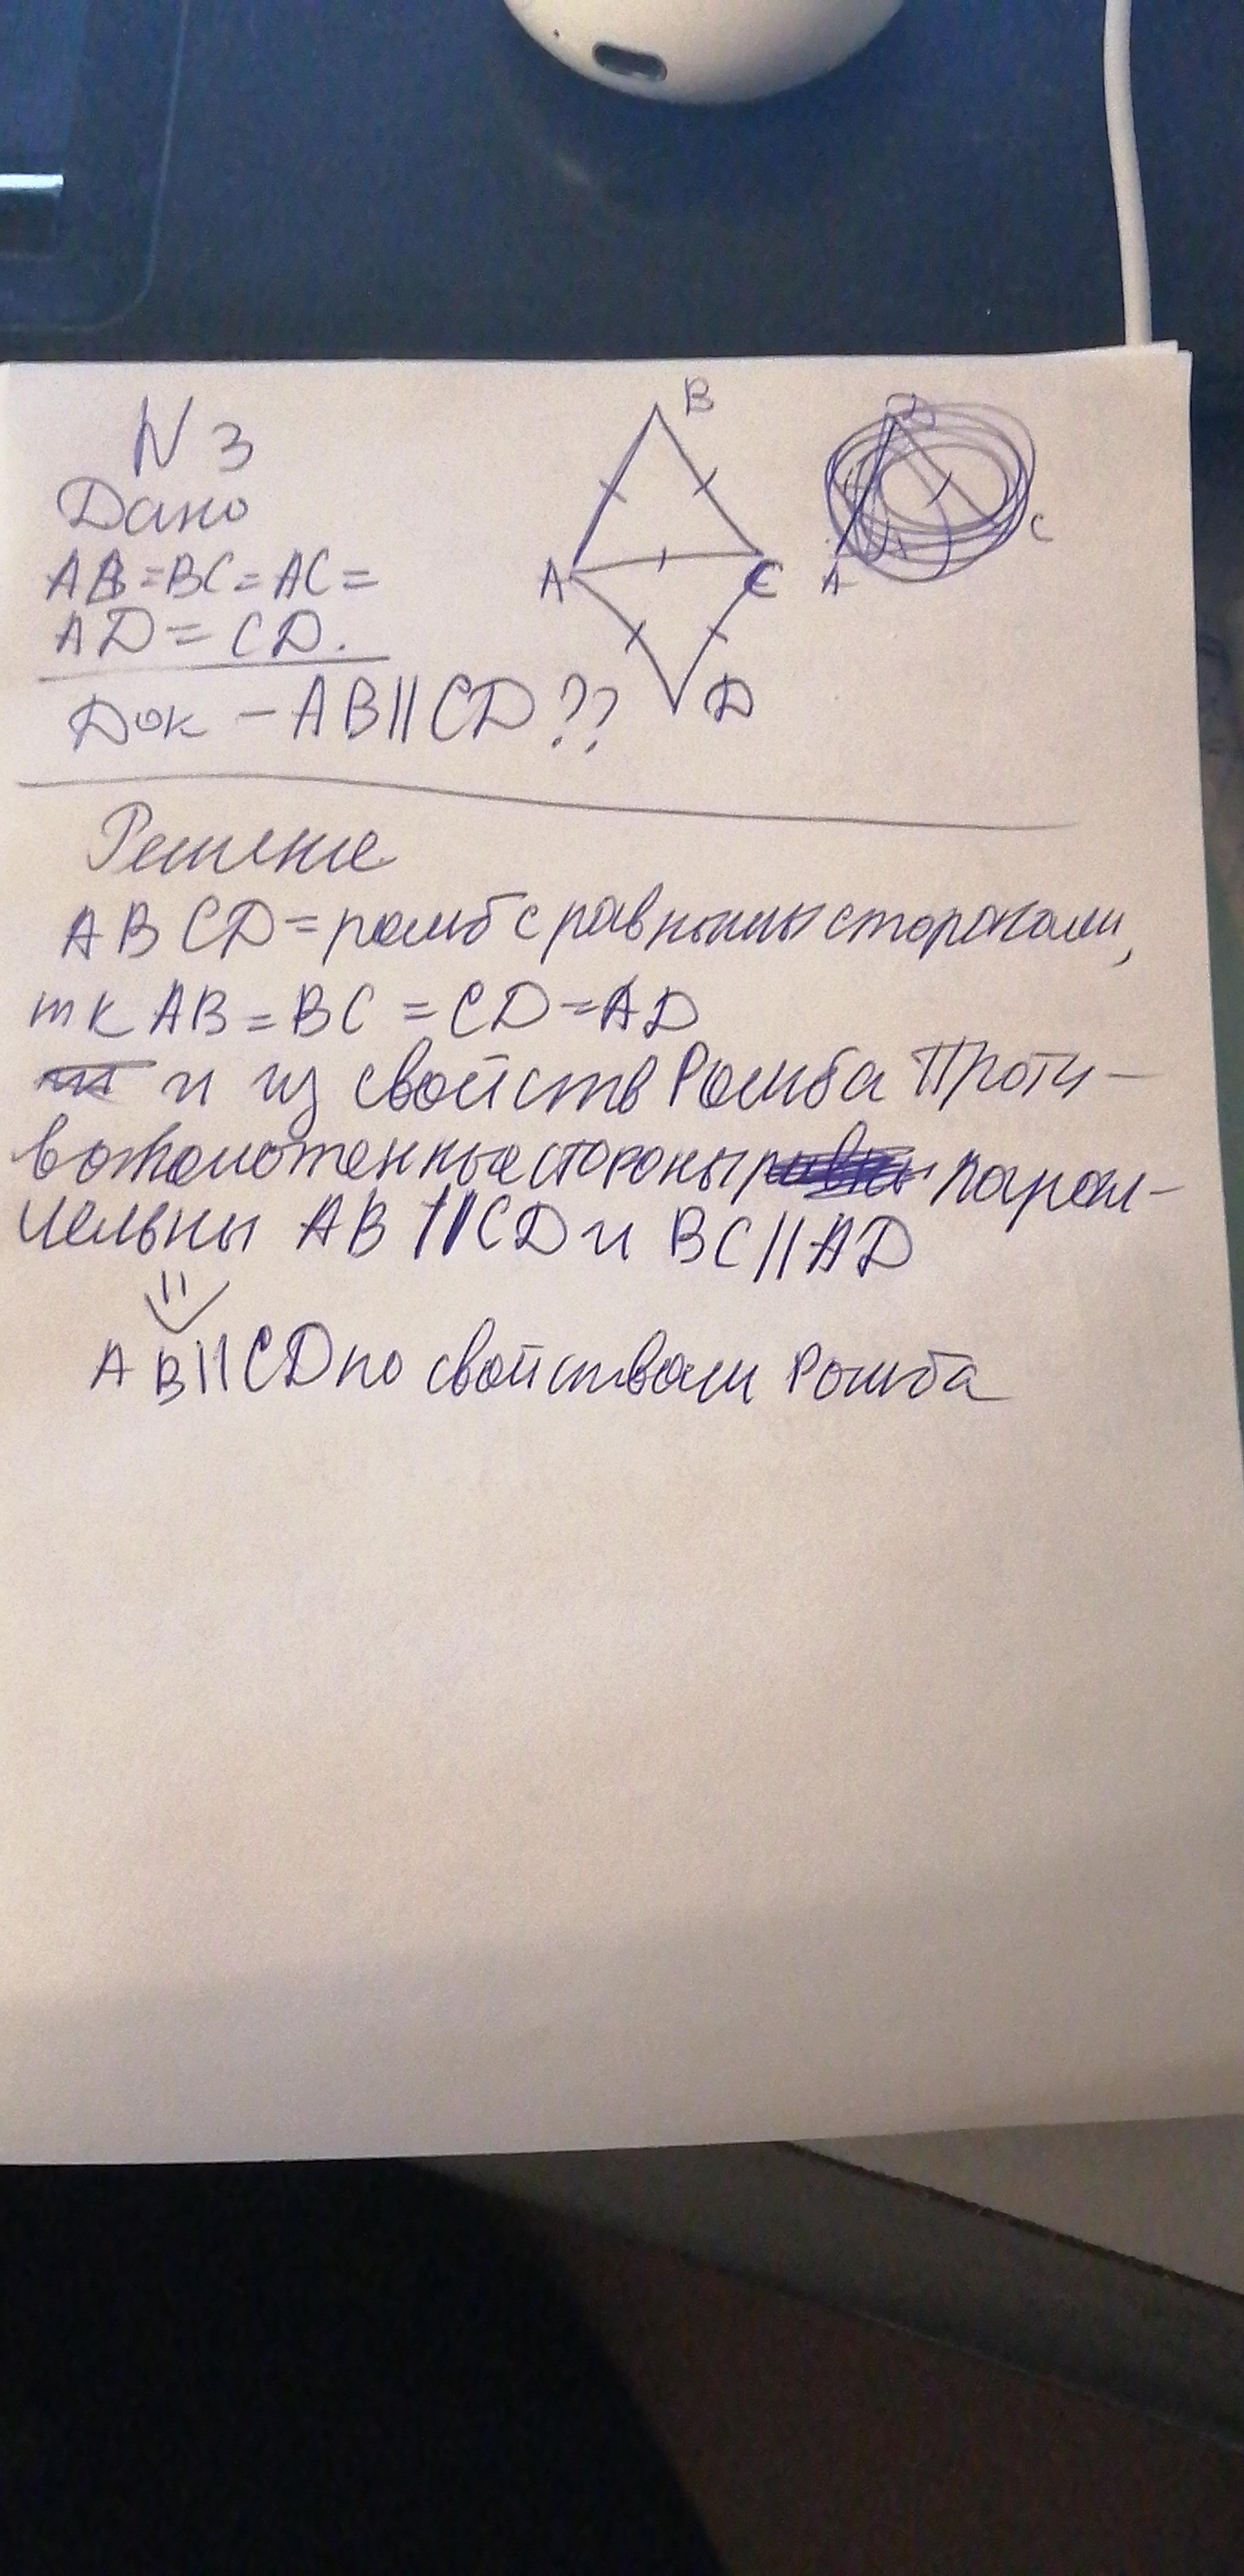 N 3
Дано
AB=BC=AC=
AD=CD.
Док – AB||CD??
B
A
C
D
A
C
Решение
ABCD=ромб с равными сторонами,
тк AB=BC=CD=AD
и из свойств Ромба Проти-
воположенные стороны парал-
лельны AB||CD и BC||AD
AB||CD по свойствам Ромба